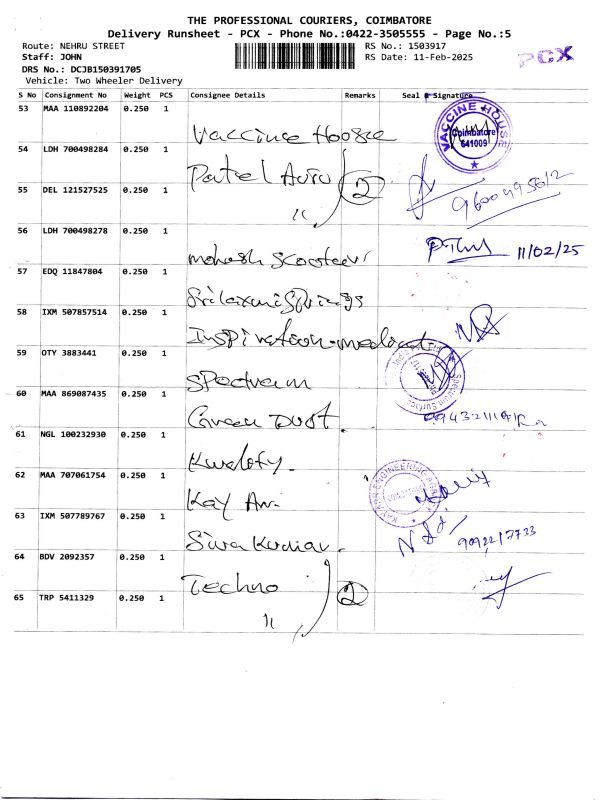 THE PROFESSIONAL COURIERS, COIMBATORE
Delivery Runsheet - PCX - Phone No.:0422-3505555 - Page No.:5
Route: NEHRU STREET RS No.: 1503917
Staff: JOHN RS Date: 11-Feb-2025
PCX
DRS No.: DCJB150391705
Vehicle: Two Wheeler Delivery
S No Consignment No Weight PCS Consignee Details Remarks Seal & Signature
53 MAA 110892204 0.250 1
Vaccine House VACCINE HOUSE Coimbatore 641009
54 LDH 700498284 0.250 1
Patel Auto 2
55 DEL 121527525 0.250 1
" 9600495612
56 LDH 700498278 0.250 1
mahesh Scooters 11/02/25
57 EDQ 11847804 0.250 1
Sri laxmi Springs
58 IXM 507857514 0.250 1
Inspiration-medical
59 OTY 3883441 0.250 1
Spectrum
60 MAA 869087435 0.250 1
Green Dust.
61 NGL 100232930 0.250 1
Kwality
62 MAA 707061754 0.250 1
Kay Arr. ENGINEERING
63 IXM 507789767 0.250 1
Siva Kumar.
64 BDV 2092357 0.250 1
Techno 2
65 TRP 5411329 0.250 1
"